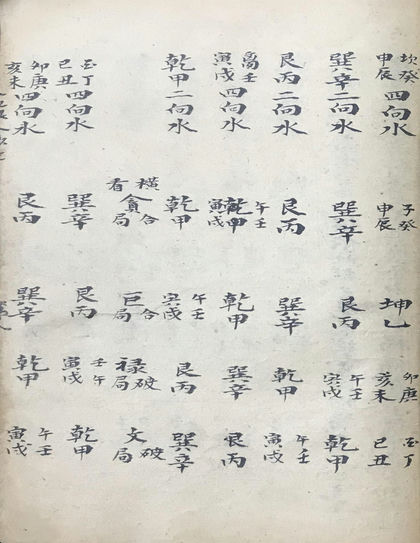 坎癸申辰四向水 子癸申辰 坤乙 卯庚亥未 酉丁巳丑
巽辛二向水 巽辛 艮丙 午壬寅戌 乾甲
艮丙二向水 艮丙 巽辛 乾甲 午壬寅戌
离壬寅戌四向水 午壬寅戌 乾甲 巽辛 艮丙
乾甲二向水 乾甲 午壬寅戌 艮丙 巽辛
横看 合貪局 合巨局 破禄局 破文局
酉丁巳丑四向水 巽辛 艮丙 壬午寅戌 乾甲
卯庚亥未四向水 艮丙 巽辛 乾甲 午壬寅戌